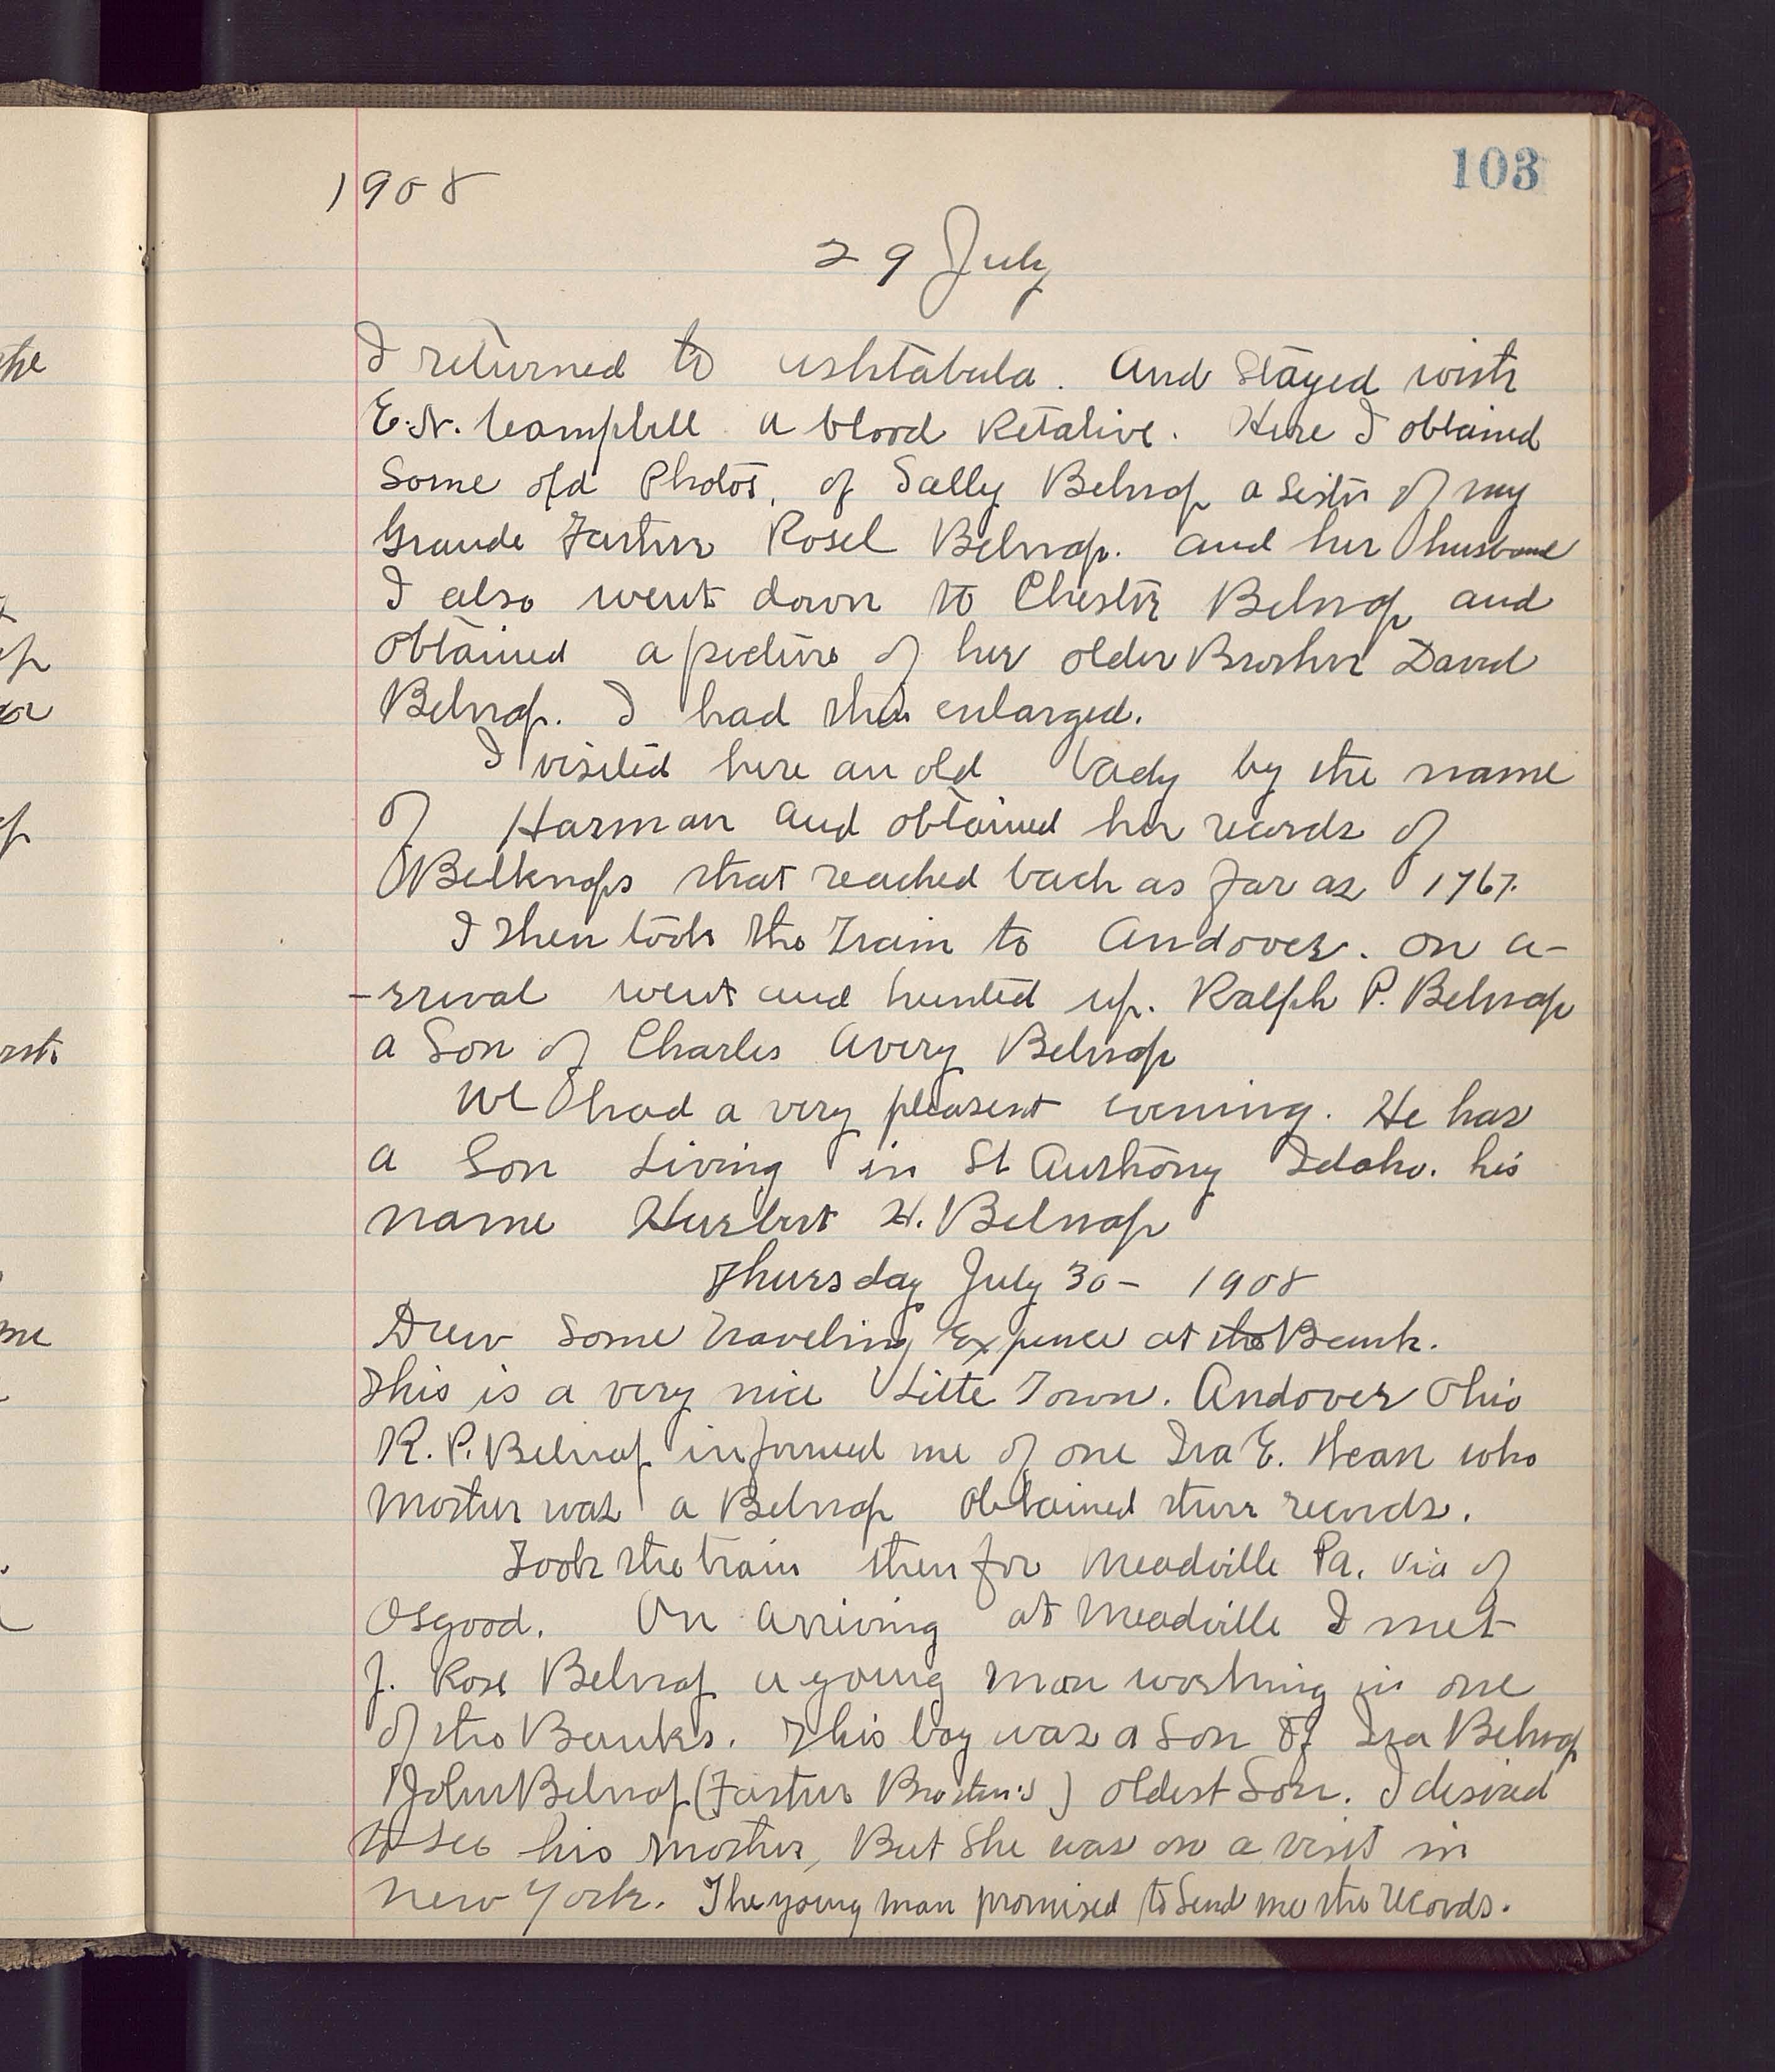 103
1908
29 July
I returned to ashtabula. And Stayed with
E. N. Campbell a blood Retalive. Here I obtained
Some old Photos, of Sally Belnap a Sister of my
Grande Farther Rosel Belnap. and her husband
I also went down to Chester Belnap and
obtained a picture of her older Brother David
Belnap. I had this enlarged.
I visited here an old Lady by the name
of Harman and obtained her records of
Belknaps that reached back as far as 1767.
I then took the Train to Andover. on a-
-rrival went and hunted up. Ralph P. Belnap
a Son of Charles Avery Belnap
We had a very pleasent evening. He has
a Son Living in St Anthony Idaho. his
name Hurbert H. Belnap
Thursday July 30- 1908
Drew Some Traveling Expence at the Bank.
This is a very nice Litte Town. Andover Ohio
R. P. Belnap informed me of one Ira E. who
Mother was a Belnap obtained there records.
Took the train then for Meadville Pa. via of
Osgood. On arriving at Meadville I met
J. Ross Belnap a young man working in one
of the Banks. This boy was a Son of Ira Belnap
John Belnap (Farthers Brother's) oldest Son. I desired
to see his Mother, But She was on a visit in
New York. The young man promised to Send me the records.